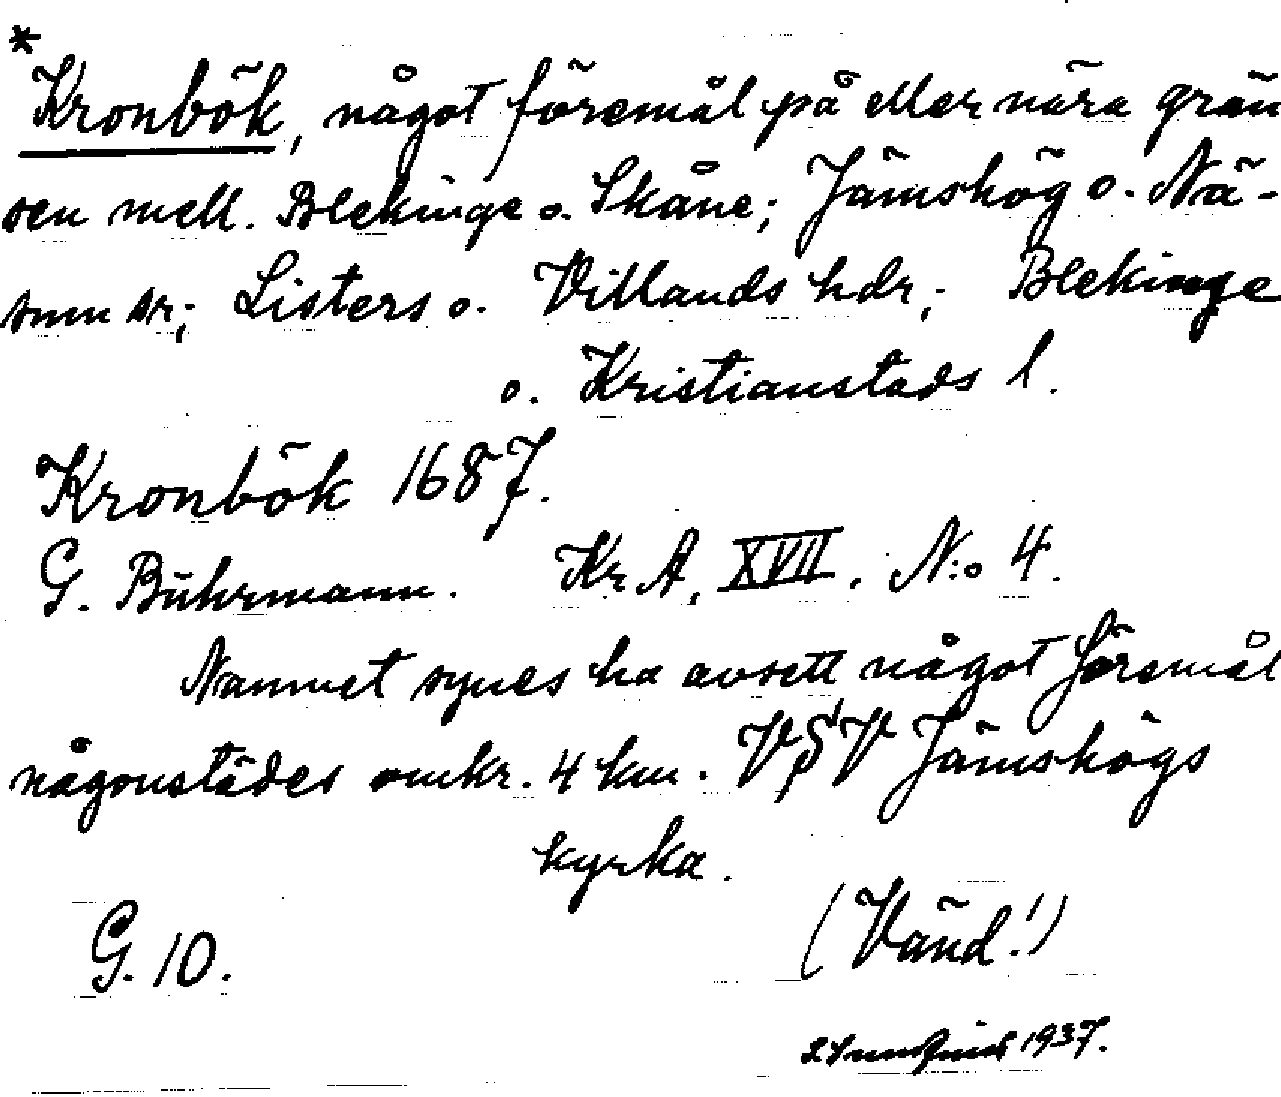 *
Kronbök, något föremål på eller nära grän
sen mell. Blekinge o. Skåne; Jämshög o. Nä-
sum sr; Listers o. Villands hdr; Blekinge
o. Kristianstads l.
Kronbök 1687.
G. Buhrmann. Kr A, XVII. N:o 4.
Namnet synes ha avsett något föremål
någonstädes omkr. 4 km. VSV Jämshögs
kyrka.
(Vänd!)
G. 10.
1937.